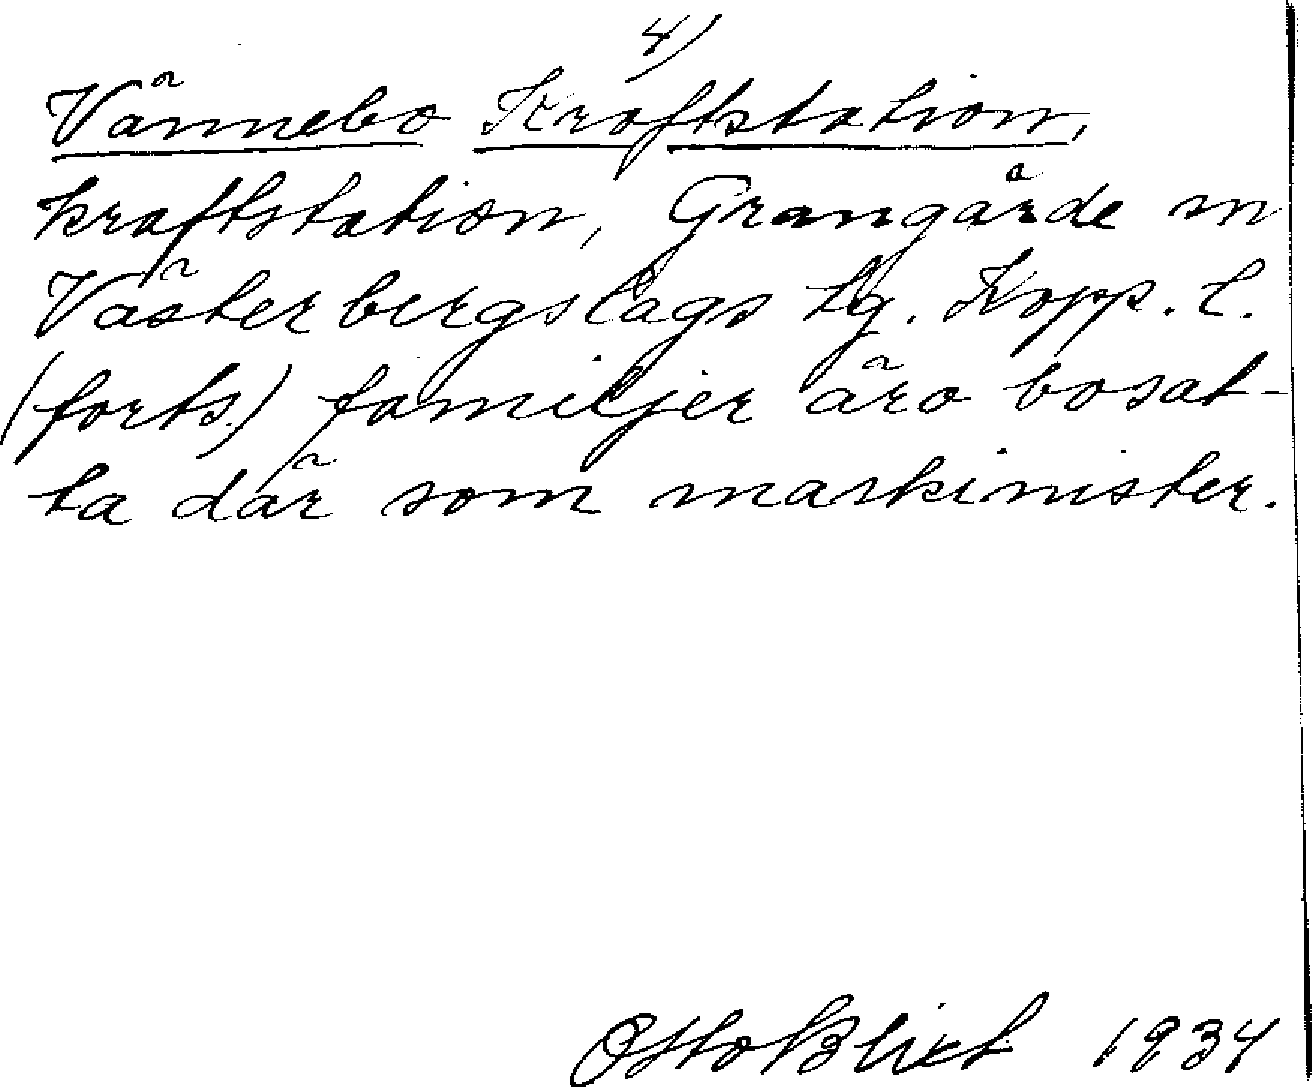 4)
Vännebo Kraftstation,
kraftstation, Grangärde sn
Västerbergslags tg. Kopp. l.
(forts.) familjer äro bosat-
ta där som maskinister.
Otto Blixt 1934